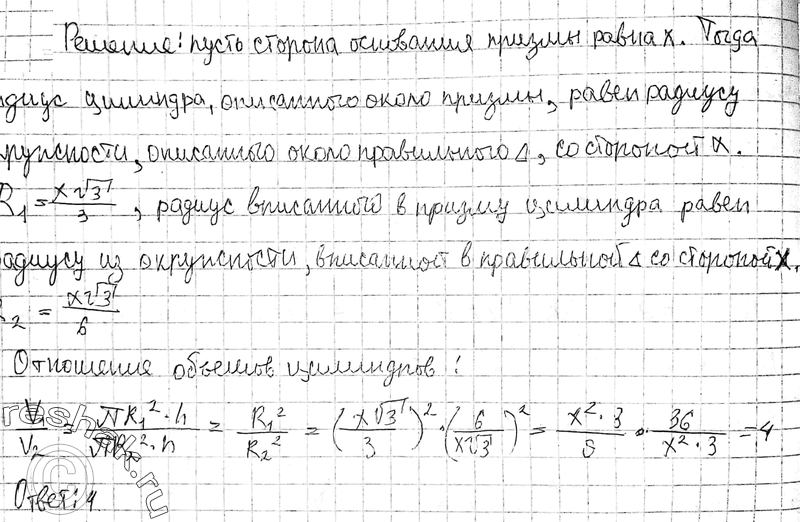 Решение: пусть сторона основания призмы равна x. Тогда
адиус цилиндра, описанного около призмы, равен радиусу
кружности, описанного около правильного Δ, со стороной x.
R₁ = x√3/3, радиус вписанного в призму цилиндра равен
радиусу из окружности, вписанной в правильной Δ со стороной x.
R₂ = x√3/6
Отношения объемов цилиндров:
V₁/V₂ = πR₁²·h/πR₂²·h = R₁²/R₂² = (x√3/3)²·(6/x√3)² = x²·3/9·36/x²·3 = 4
Ответ: 4
reshak.ru